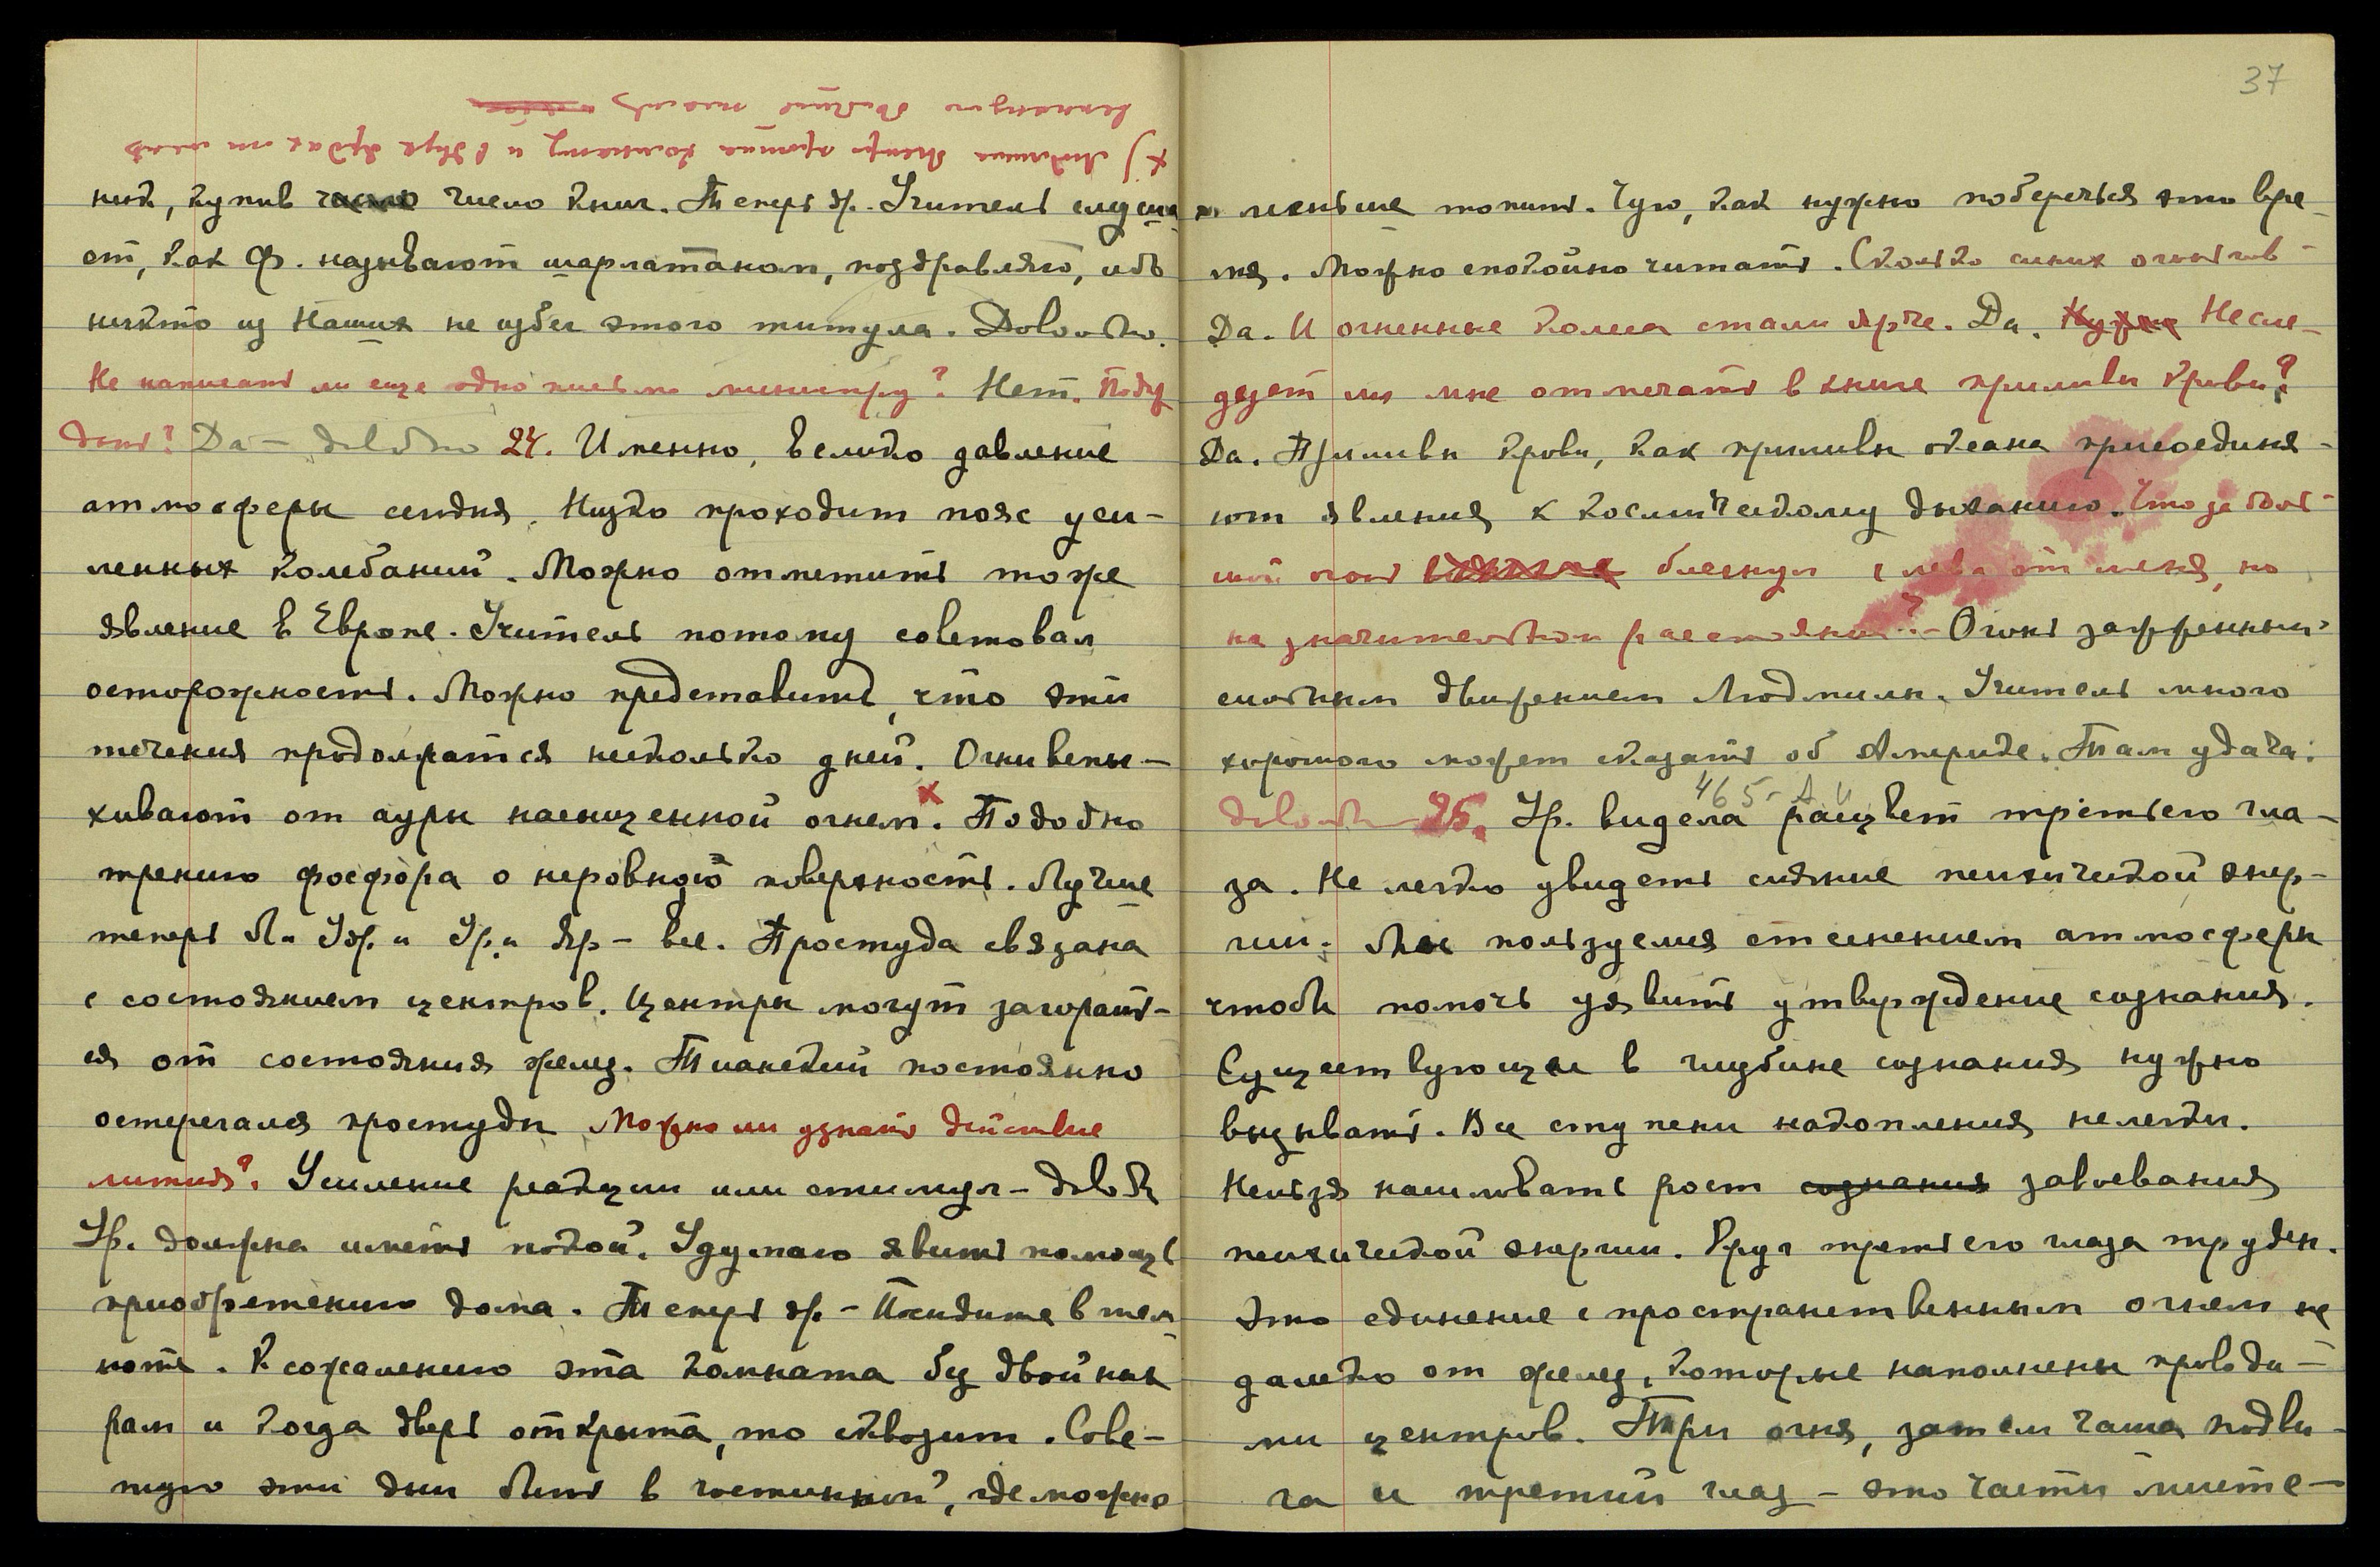 37
х) Людмила вчера прошла комнату и в двух футах от меня
вспыхнул большой
ний, купив число книг. Теперь др. Учитель слуша-
ет, как Ф. называют шарлатаном, поздравляю, ибо
никто из Наших не избег этого титула. Довольно.
Не написать ли еще одно письмо министру? Нет. Подож
дать? Да – довольно 24. Именно, велико давление
атмосферы сегодня. Низко проходит пояс уси-
ленных колебаний. Можно отметить то же
явление в Европе. Учитель потому советовал
осторожность. Можно представить, что эти
течения продолжатся несколько дней. Огни вспы-
хивают от ауры насыщенной огнем. х Подобно
трению фосфора о неровную поверхность. Лучше
теперь Л. и Ур. и Яр – все. Простуда связана
с состоянием центров. Центры могут загорать-
ся от состояния желез. Тианский постоянно
остерегался простуды Можно ли узнать действие
лития? Усиление реакции или стимул – довольно
Ур. должна иметь покой. Удумаю явить помощь
приобретению дома. Теперь др. – Посидите в тем
ноте. К сожалению эта комната без двойных
рам и когда дверь открыта, то сквозит. Сове-
тую эти дни быть в гостинной, где можно
меньше топить. Чую, как нужно поберечься это вре-
мя. Можно спокойно читать. Сколько синих огоньков
Да. И огненные колеса стали ярче. Да. Нужно Несле-
дует ли мне отмечать в книге приливы крови?
Да. Приливы крови, как приливы океана присоединя-
ют явления к космическому дыханию. Что за боль-
шой огонь блеснул слева от меня, но
на значительном расстоянии? – Огонь зажженный
сильным движением Людмилы. Учитель много
хорошего может сказать об Америке. Там удача.
465 – А. Й
довольно 25. Ур. видела расцвет третьего гла-
за. Не легко увидеть сияние психической энер-
гии. Мы пользуемся стеснением атмосферы
чтобы помочь уявить утверждение сознания.
Существующее в глубине сознания нужно
вызывать. Все ступени накопления нелегки.
Нельзя насиловать рост сознания завоевания
психической энергии. Круг третьего глаза труден.
Это единение с пространственным огнем не
далеко от желез, которые наполнены провода-
ми центров. Три огня, затем чаша подви-
га и третий глаз – это части мисте-